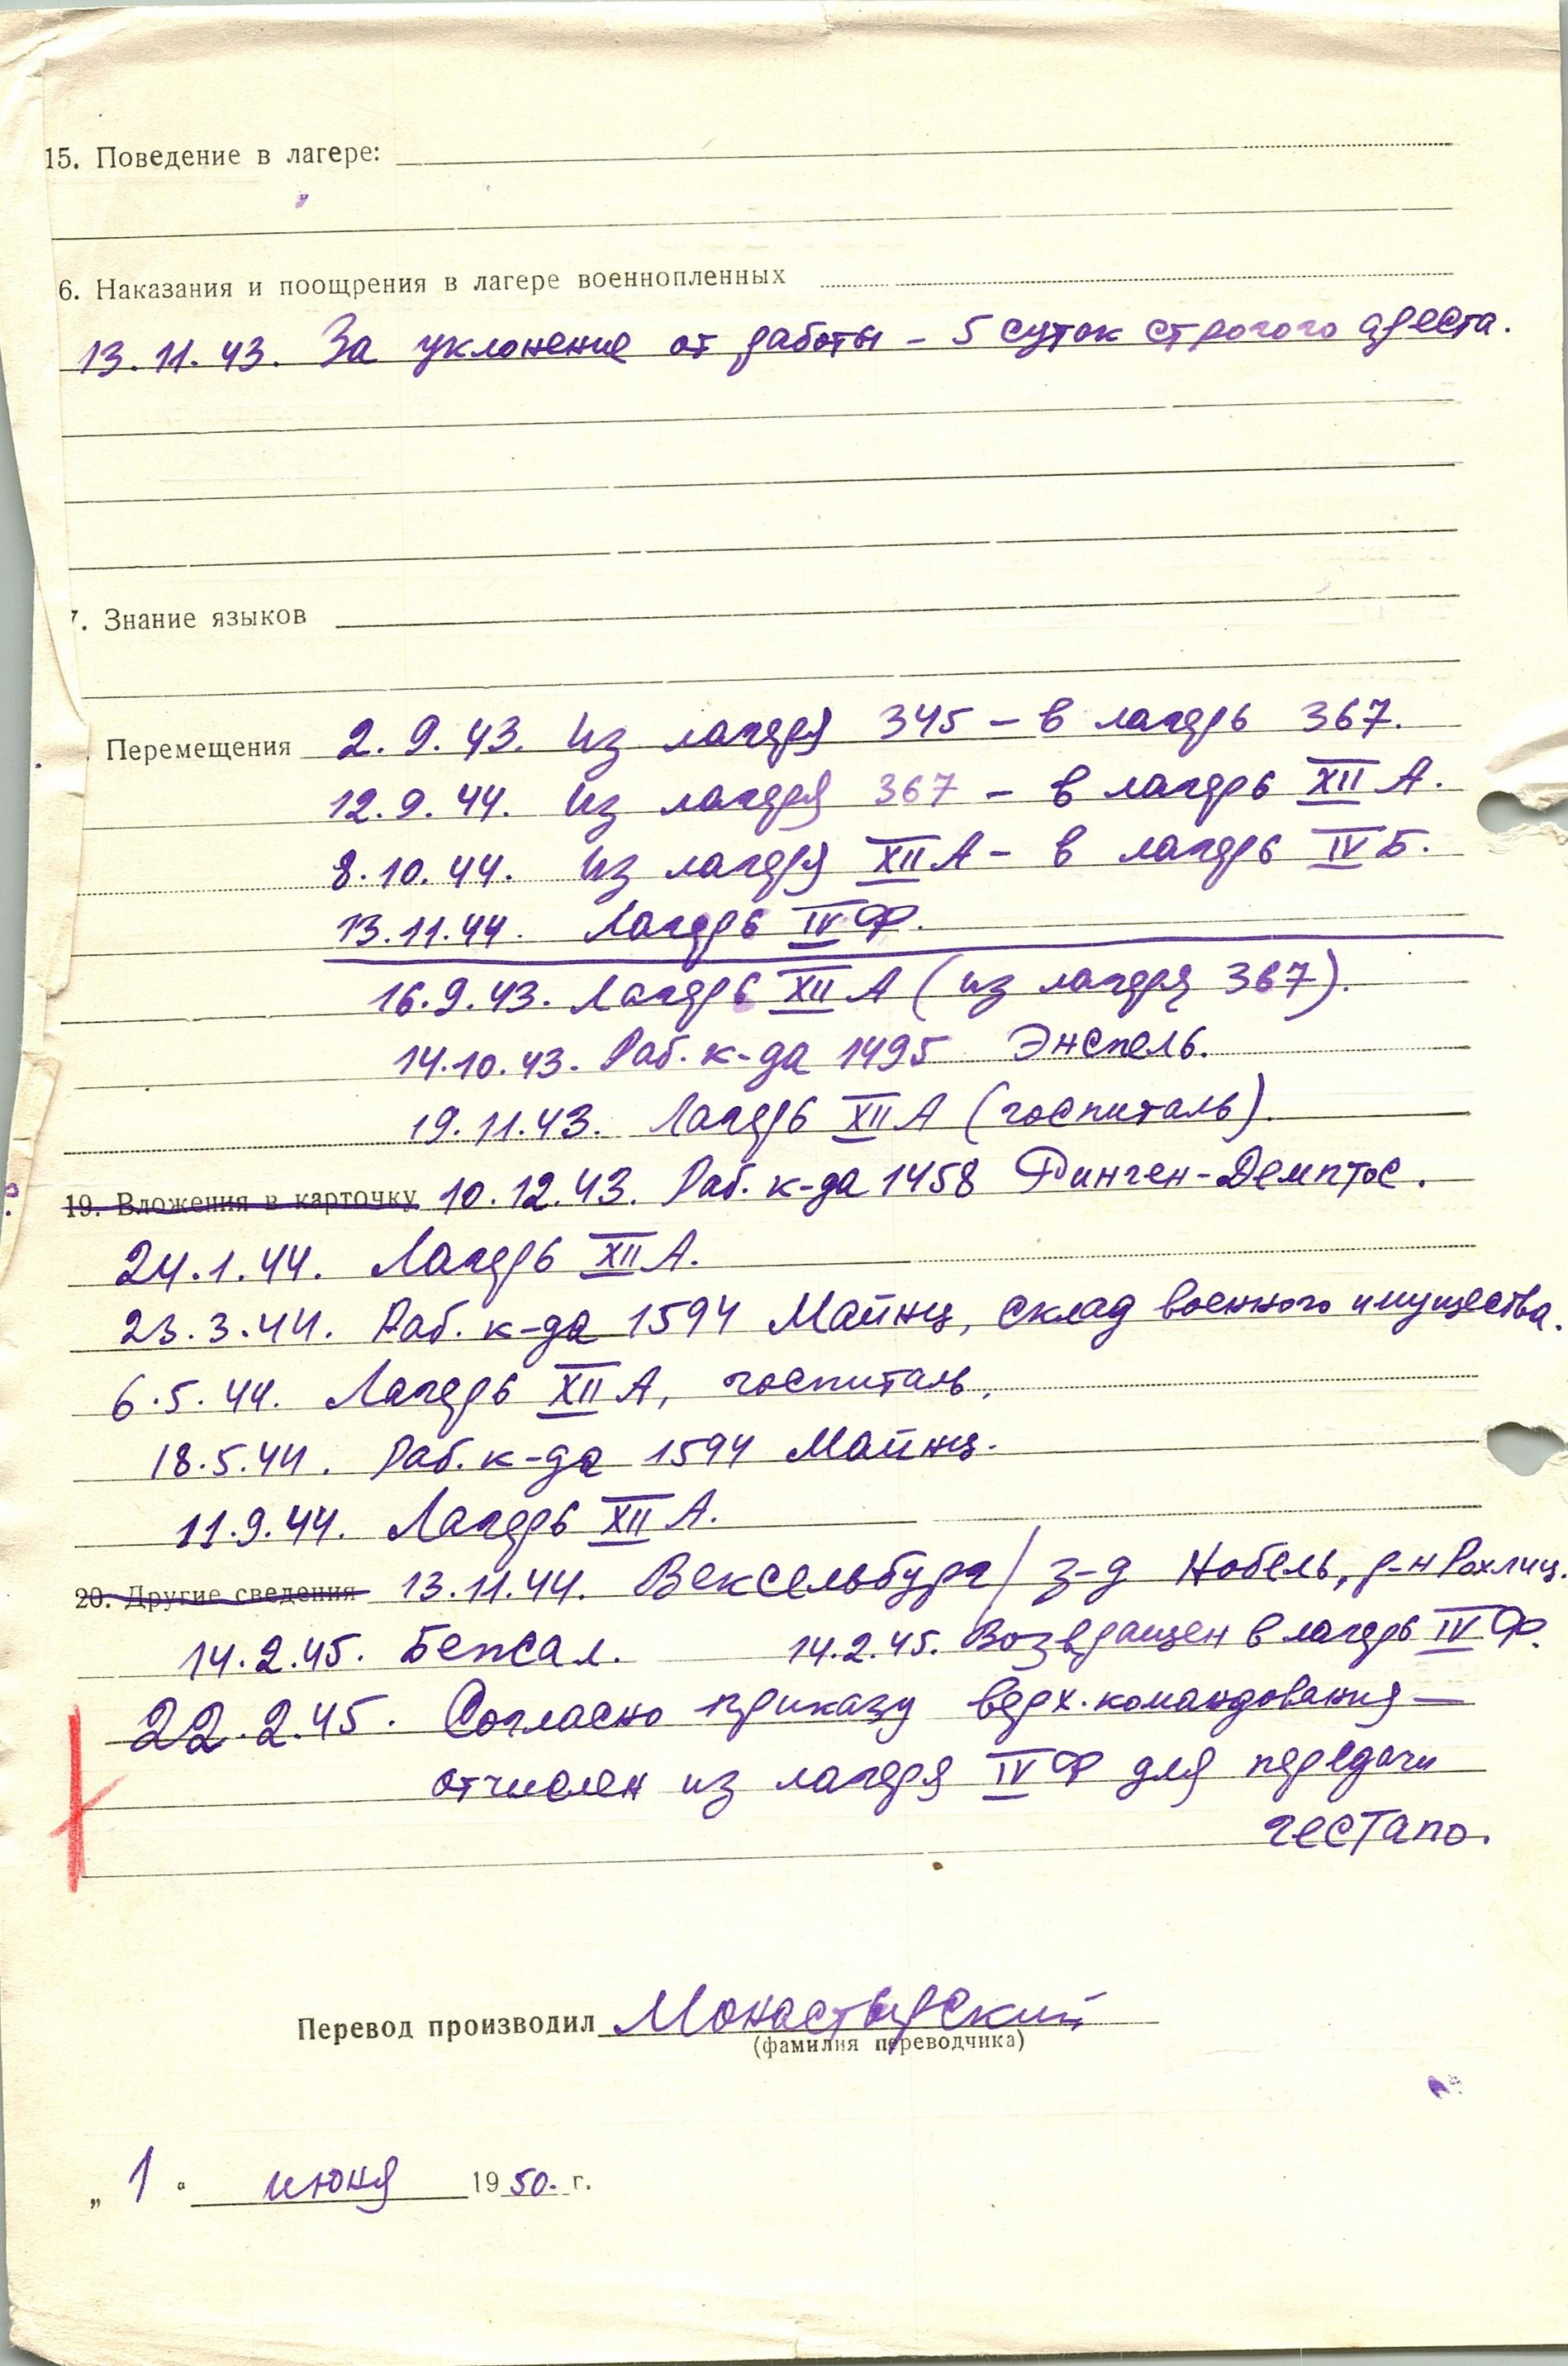 15. Поведение в лагере:
6. Наказания и поощрения в лагере военнопленных
13.11.43. За уклонение от работы - 5 суток строгого ареста.
7. Знание языков
Перемещения 2.9.43. Из лагеря 345 - в лагерь 367.
12.9.44. Из лагеря 367 - в лагерь XII А.
8.10.44. Из лагеря XII А - в лагерь IV Б.
13.11.44. Лагерь IV Ф.
16.9.43. Лагерь XII А (из лагеря 367).
14.10.43. Раб. к-да 1495 Энспель.
19.11.43. Лагерь XII А (госпиталь).
19. Вложения в карточку 10.12.43. Раб. к-да 1458 Финген-Демптос.
24.1.44. Лагерь XII А.
23.3.44. Раб. к-да 1594 Майнц, склад военного имущества.
6.5.44. Лагерь XII А, госпиталь.
18.5.44. Раб. к-да 1594 Майнц.
11.9.44. Лагерь XII А.
20. Другие сведения 13.11.44. Вексельбург / з-д Нобель, р-н Рохлиц.
14.2.45. Бежал. 14.2.45. Возвращен в лагерь IV Ф.
22.2.45. Согласно приказу верх. командования -
отчислен из лагеря IV Ф для передачи
гестапо.
Перевод производил Монастырский
(фамилия переводчика)
„ 1 " июня 1950. г.